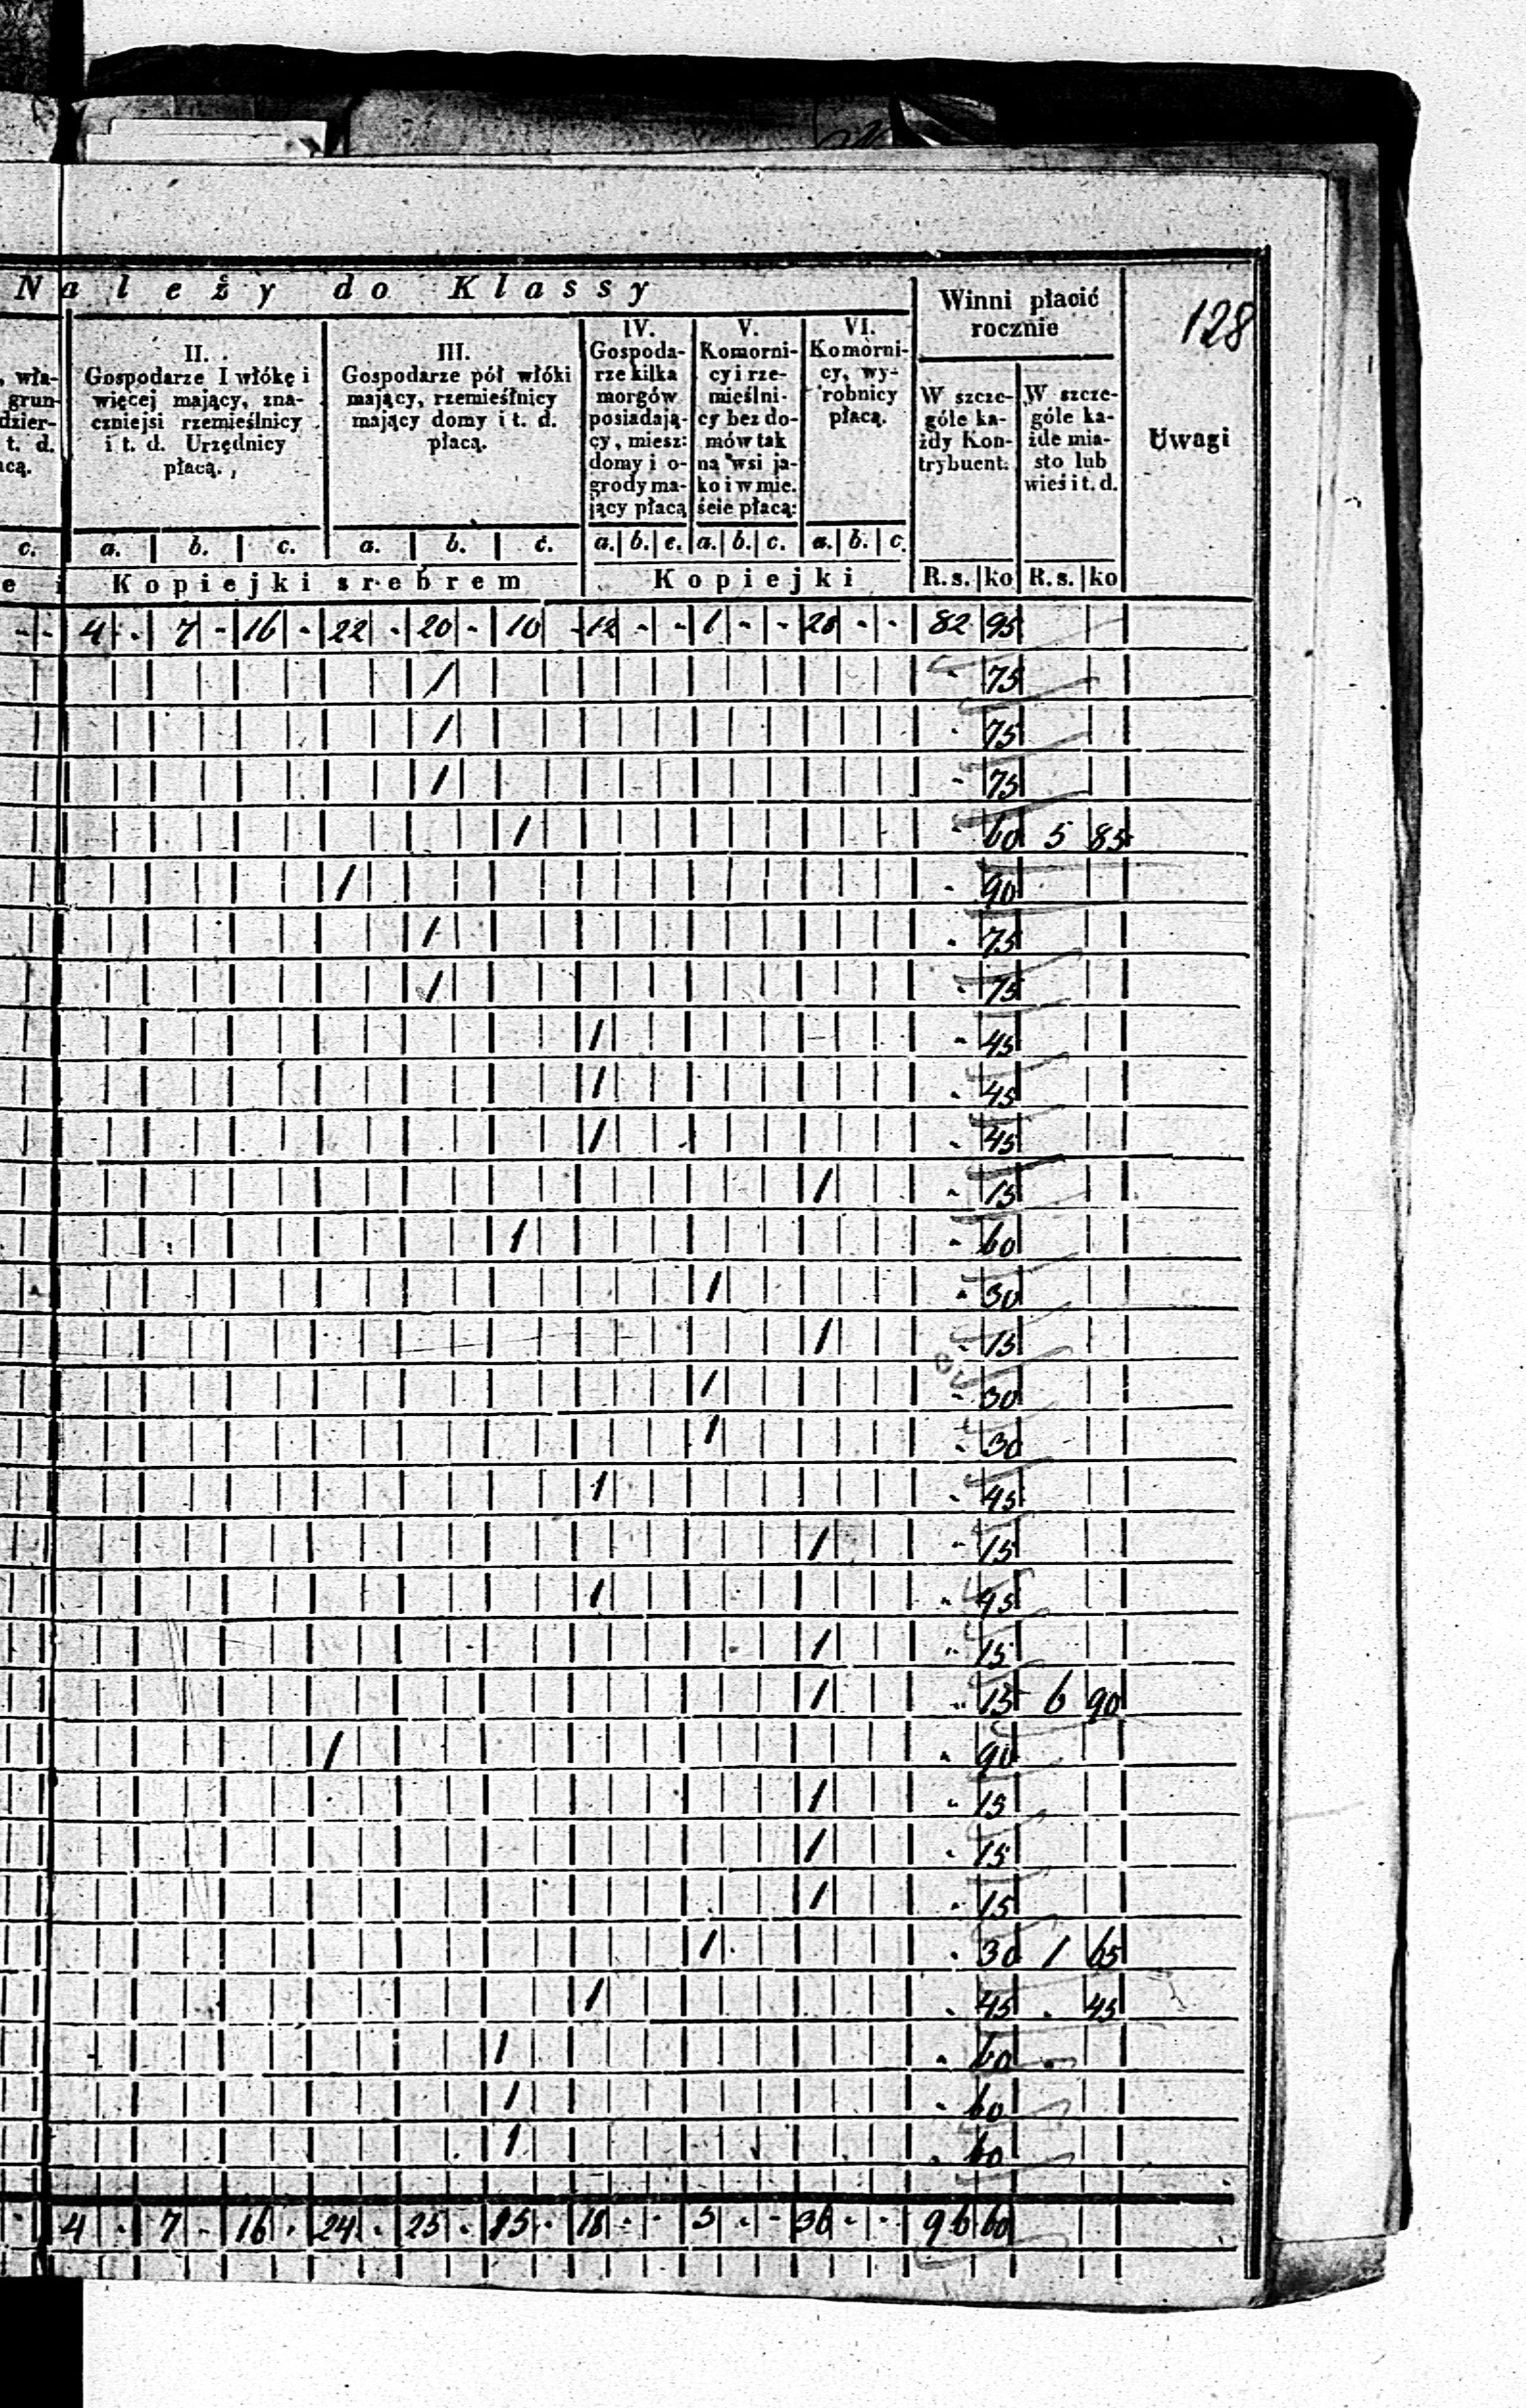 128
Należy do Klassy
Winni płacić rocznie
Uwagi
, wła-
grun-
dzier-
t. d.
acą.
II.
Gospodarze I włókę i
więcej mający, zna-
czniejsi rzemieślnicy
i t. d. Urzędnicy
płacą.
III.
Gospodarze pół włóki
mający, rzemieślnicy
mający domy i t. d.
płacą.
IV.
Gospoda-
rze kilka
morgów
posiadają-
cy, miesz:
domy i o-
grody ma-
jący płacą
V.
Komorni-
cy i rze-
mieślni-
cy bez do-
mów tak
na wsi ja-
ko i w mie.
ście płacą:
VI.
Komorni-
cy, wy-
robnicy
płacą.
W szcze-
góle ka-
żdy Kon-
trybuent.
W szcze-
góle ka-
żde mia-
sto lub
wieś i t. d.
c. a. b. c. a. b. c. a. b. c. a. b. c. a. b. c.
e i Kopiejki srebrem Kopiejki R.s. ko R.s. ko
- - 4 - 7 - 16 - 22 - 20 - 10 - 12 - - 1 - - 28 - - 82 95
1 - 75
1 - 75
1 - 75
1 - 60 5 85
1 - 90
1 - 75
1 - 75
1 - 45
1 - 45
1 - 45
1 - 15
1 - 60
1 - 30
1 - 15
1 - 30
1 - 30
1 - 45
1 - 15
1 - 45
1 - 15
1 - 15 6 90
1 - 90
1 - 15
1 - 15
1 - 15
1 - 30 1 65
1 - 45 - 45
1 - 60 -
1 - 60
1 - 60
- 4 - 7 - 16 - 24 - 25 - 15 - 18 - - 5 - - 36 - - 96 60